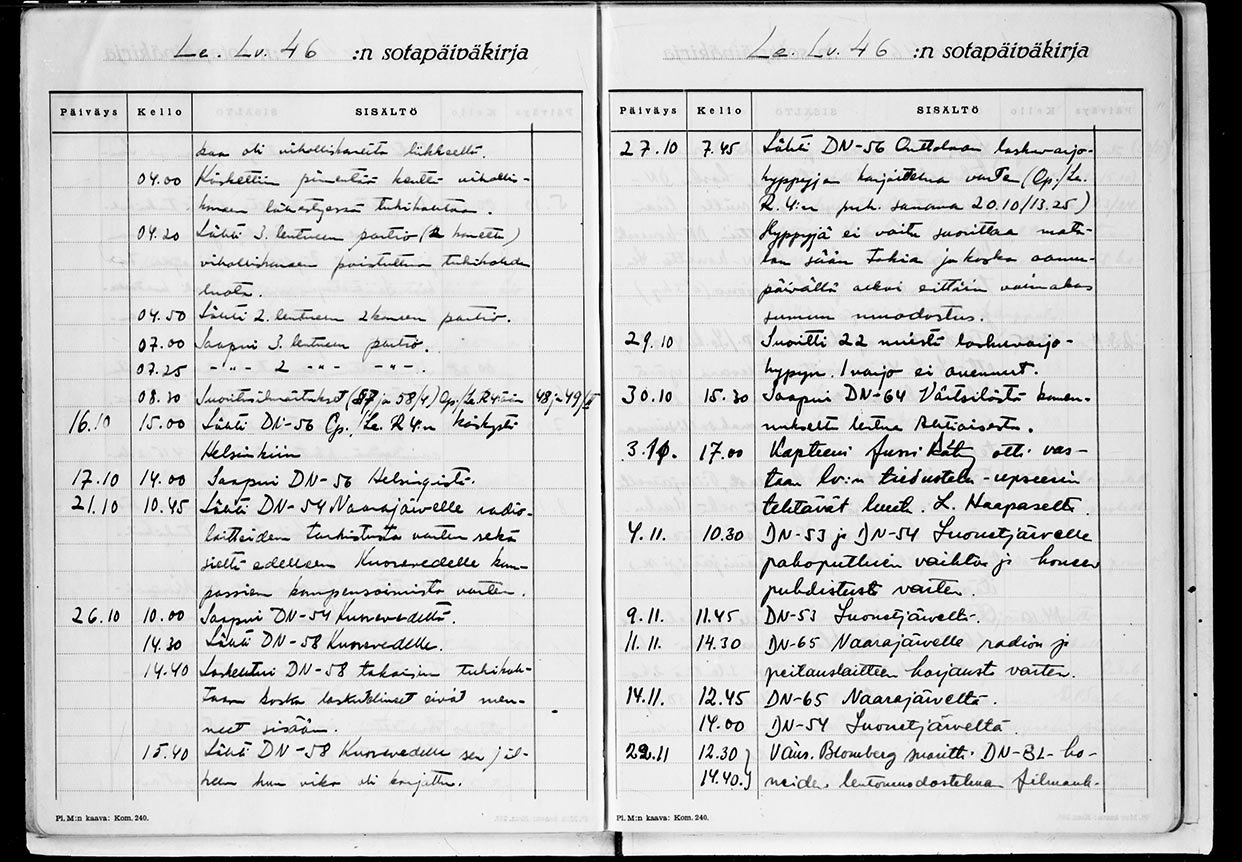 Le. Lv. 46 :n sotapäiväkirja
Päiväys Kello SISÄLTÖ
kaa oli viholliskoneita liikkeellä.
04.00 Käskettiin pimentää kenttä vihollis-
koneen lähestyessä tukikohtaa.
04.20 Lähti 3. lentueen partio (2 konetta)
viholliskoneen poistuttua tukikohdan
luota.
04.50 Lähti 2. lentueen 2 koneen partio.
07.00 Saapui 3. lentueen partio.
07.25 -"- 2 -"- -"-.
08.30 Suoritusilmoitukset (57 ja 58/4) Op./Le.R4:ään 48 ja 49/
16.10 15.00 Lähti DN-56 Op./Le.R 4:n käskystä
Helsinkiin
17.10 14.00 Saapui DN-56 Helsingistä.
21.10 10.45 Lähti DN-54 Naarajärvelle radio-
laitteiden tarkistusta varten sekä
sieltä edelleen Kuorevedelle kom-
passien kompensoimista varten.
26.10 10.00 Saapui DN-54 Kuorevedeltä.
14.30 Lähti DN-58 Kuorevedelle.
14.40 Laskeutui DN-58 takaisin tukikoh-
taan koska laskutelineet eivät men-
neet sisään.
15.40 Lähti DN-58 Kuorevedelle sen jäl-
keen kun vika oli korjattu.
Pl. M:n kaava: Kom. 240.
Le. Lv. 46 :n sotapäiväkirja
Päiväys Kello SISÄLTÖ
27.10 7.45 Lähti DN-56 Onttolaan laskuvarjo-
hyppyjen harjoittelua varten (Op./Le.
R.4:n puh. sanoma 20.10/13.25)
Hyppyjä ei voitu suorittaa mata-
lan sään takia ja koska aamu-
päivällä alkoi erittäin voimakas
sumun muodostus.
29.10 Suoritti 22 miestä laskuvarjo-
hypyn. 1 varjo ei auennut.
30.10 15.30 Saapui DN-64 Värtsilästä komen-
nukselta lentue Ahtiaisesta.
3.11. 17.00 Kapteeni Jussi Räty otti vas-
taan lv:n tiedustelu-upseerin
tehtävät luutn. L. Haapaselta.
4.11. 10.30 DN-53 ja DN-54 Suonetjärvelle
pakoputkien vaihtoa ja koneen
puhdistusta varten.
9.11. 11.45 DN-53 Suonetjärveltä.
11.11. 14.30 DN-65 Naarajärvelle radion ja
peitauslaitteen korjausta varten.
14.11. 12.45 DN-65 Naarajärveltä
14.00 DN-54 Suonetjärveltä.
22.11 12.30 Vänr. Blomberg suoritti DN-BL-ko-
14.40. neiden lentomuodostelman filmauk-
Pl. M:n kaava: Kom. 240.